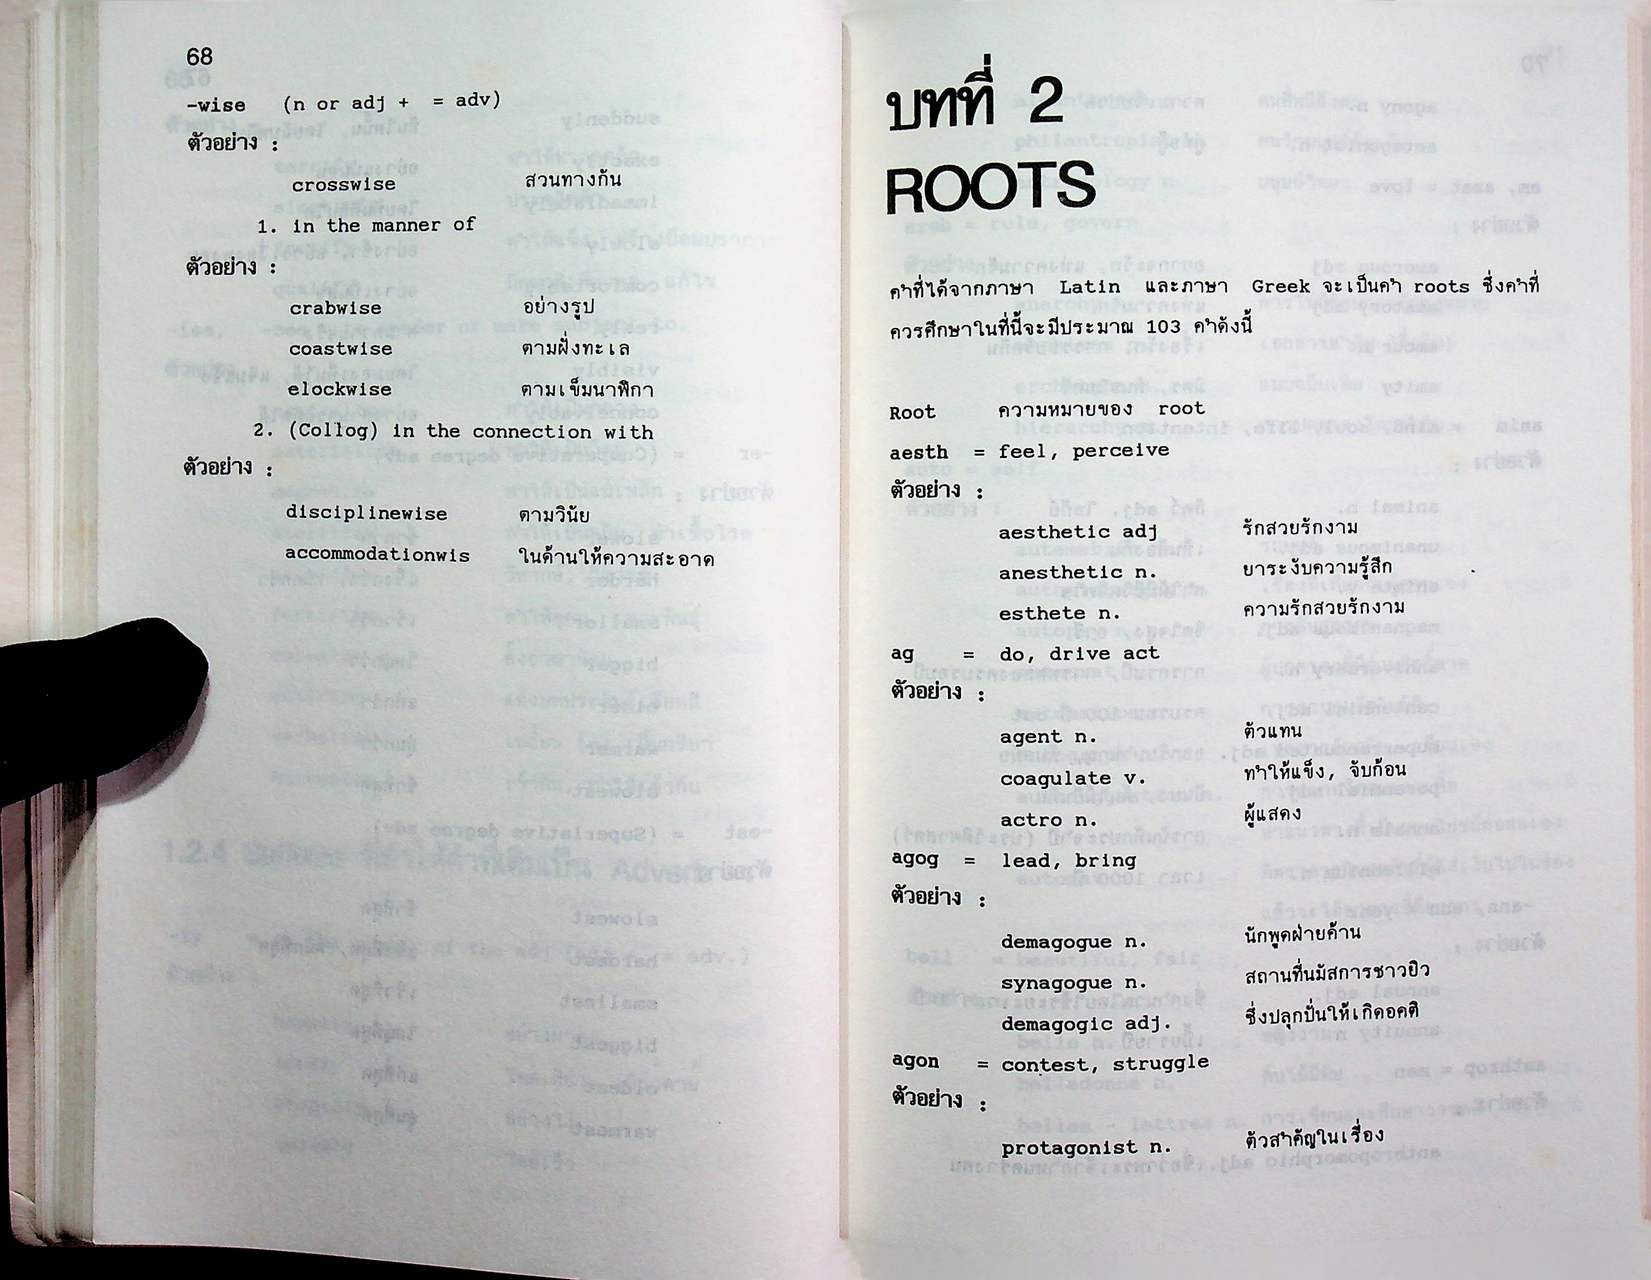 68
-wise (n or adj + = adv)
ตัวอย่าง :
crosswise สวนทางกัน
1. in the manner of
ตัวอย่าง :
crabwise อย่างรูป
coastwise ตามฝั่งทะเล
elockwise ตามเข็มนาฬิกา
2. (Collog) in the connection with
ตัวอย่าง :
disciplinewise ตามวินัย
accommodationwis ในด้านให้ความสะอาด
บทที่ 2
ROOTS
คำที่ได้จากภาษา Latin และภาษา Greek จะเป็นคำ roots ซึ่งคำที่
ควรศึกษาในที่นี้จะมีประมาณ 103 คำดังนี้
Root ความหมายของ root
aesth = feel, perceive
ตัวอย่าง :
aesthetic adj รักสวยรักงาม
anesthetic n. ยาระงับความรู้สึก
esthete n. ความรักสวยรักงาม
ag = do, drive act
ตัวอย่าง :
agent n. ตัวแทน
coagulate v. ทำให้แข็ง, จับก้อน
actro n. ผู้แสดง
agog = lead, bring
ตัวอย่าง :
demagogue n. นักพูดฝ่ายค้าน
synagogue n. สถานที่นมัสการชาวยิว
demagogic adj. ซึ่งปลุกปั่นให้เกิดอคติ
agon = contest, struggle
ตัวอย่าง :
protagonist n. ตัวสำคัญในเรื่อง